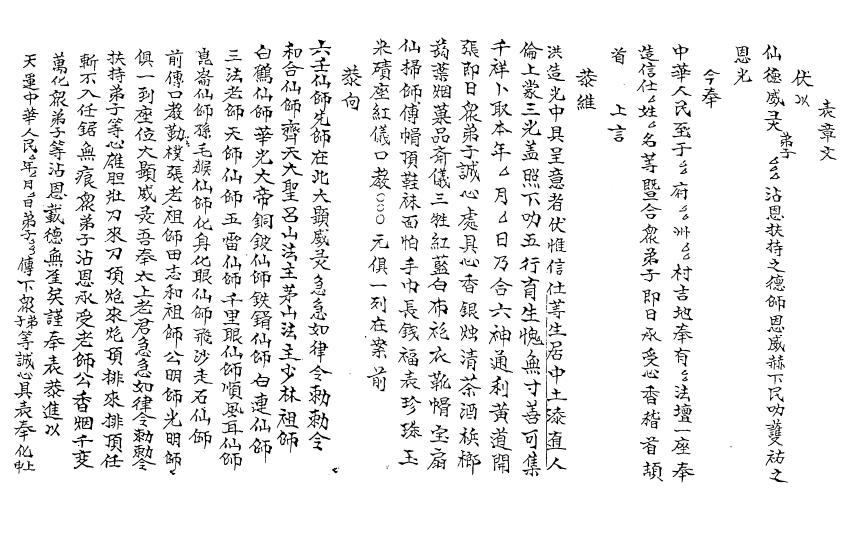 表章文
伏以
仙德威灵 弟子厶厶沾恩扶持之德師恩威赫下民叨護祐之
恩光
今奉
中華人民至于厶府厶州厶村吉地奉有厶法壇一座奉
造信仕厶姓厶名等暨合眾弟子即日承受心香稽首頡
首 上言
恭維
洪造光中具呈意者伏惟信仕等生居中土忝直人
倫上蒙三光盖照下叨五行育生愧無寸善可集
千祥卜取本年厶月厶日乃合六神通利黄道開
張即日眾弟子誠心處具心香銀烛清茶酒槟榔
蒟葉烟菓品斎儀三牲紅藍白布袍衣靴帽宝扇
仙掃師傅帽頂鞋袜面怕手巾長銭福表珍珠玉
米碛座紅儀口教〇〇〇元俱一列在案前
恭向
六壬仙師先師在此大顯威灵急急如律令勅勅令
和合仙師齊天大聖呂山法主茅山法主少林祖師
白鶴仙師華光大帝銅鈸仙師鉄鎖仙師白連仙師
三法老師天師仙師五雷仙師千里眼仙師順風耳仙師
崑崙仙師孫毛猴仙師化身化眼仙師飛沙走石仙師
前傳口教勤樸張老祖師田志和祖師公明師光明師
俱一到座位大顯威灵吾奉太上老君急急如律令勅勅令
扶持弟子等心雄胆壯刀來刀頂炮來炮頂排來排頂任
斬不入任鋸無痕眾弟子沾恩承受老師公香烟千变
萬化眾弟子等沾恩載德無涯矣謹奉表恭進以
天運中華人民厶年厶月厶日弟子厶厶傳下眾弟子等誠心具表奉化上申